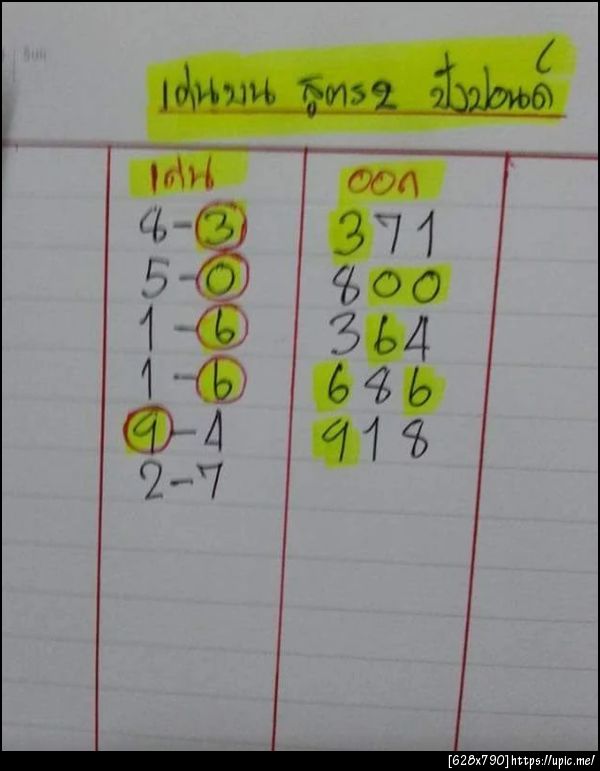 เด่นบน สูตร2 ปิงปอนด์
เด่น ออก
8-3 371
5-0 800
1-6 364
1-6 686
9-4 918
2-7
[628x790]https://upic.me/